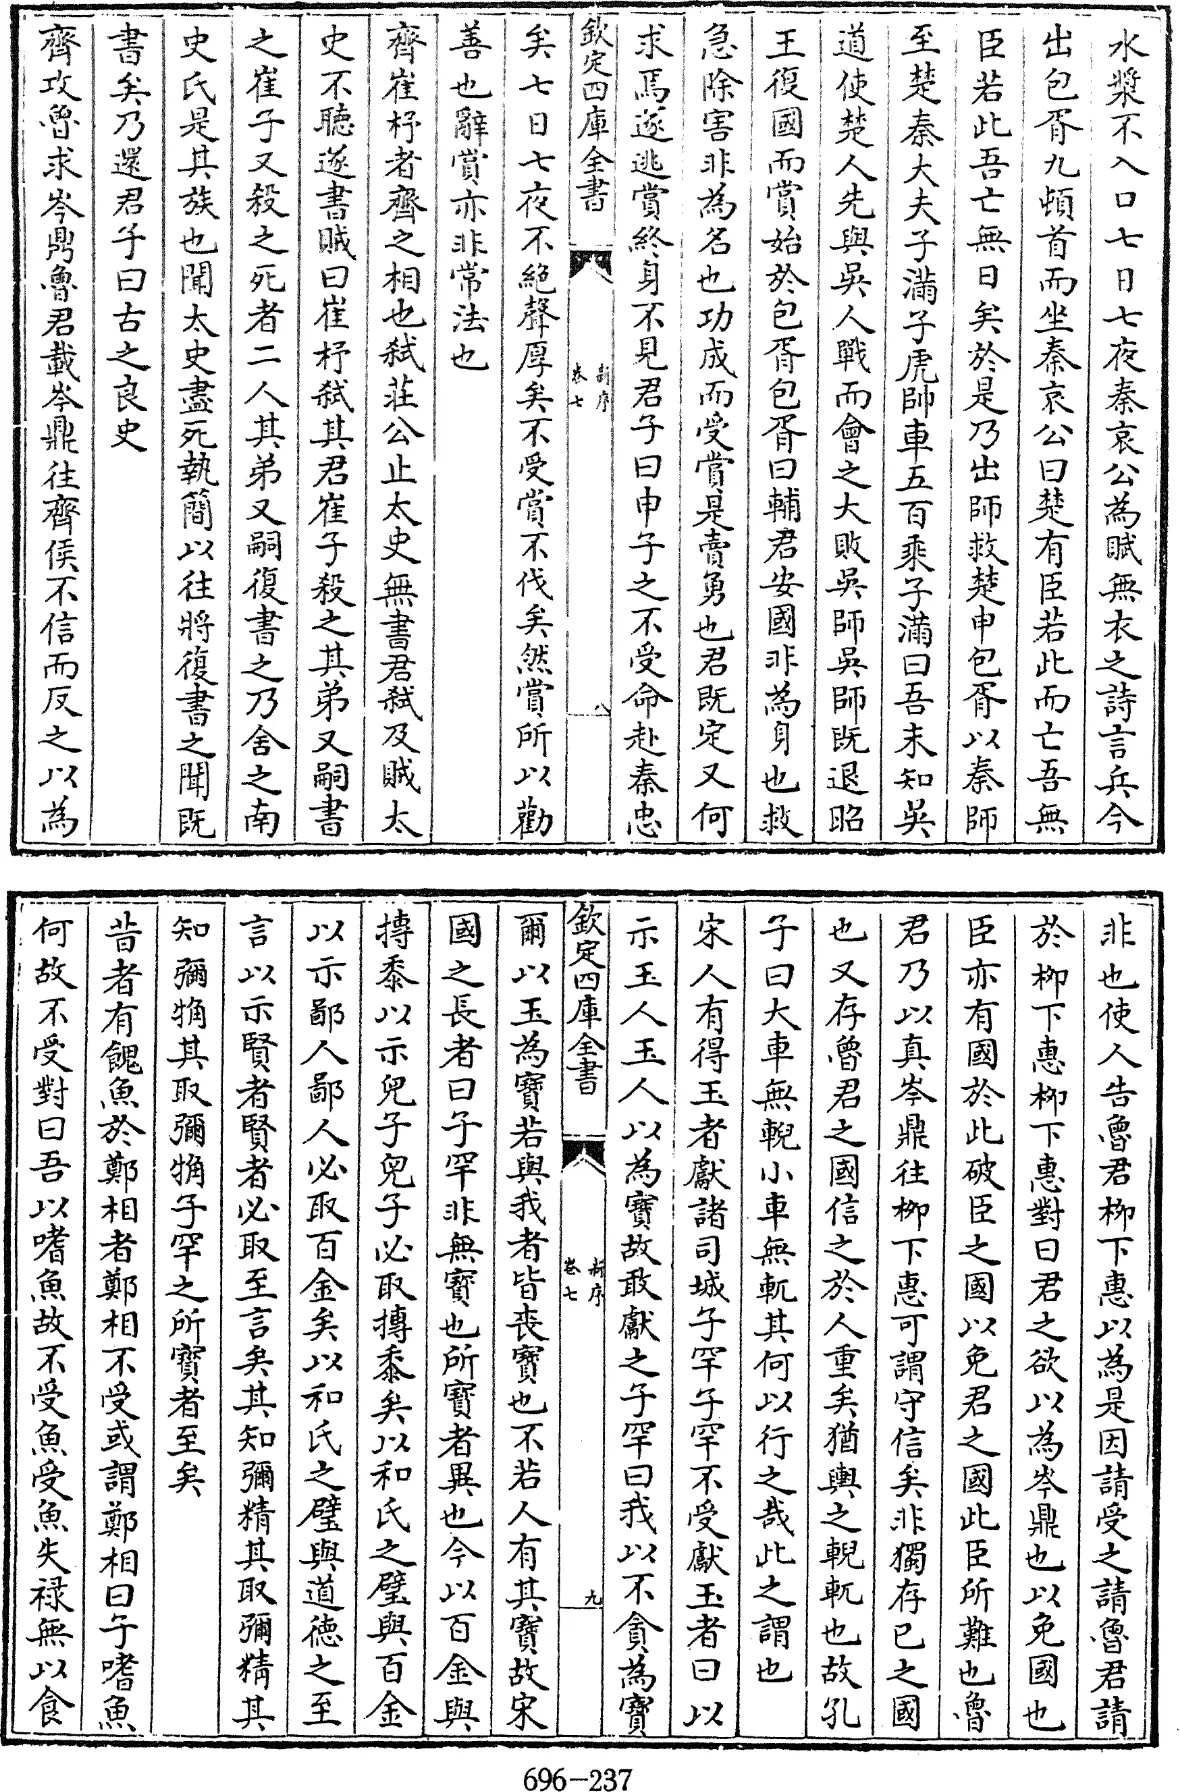 水漿不入口七日七夜秦哀公為賦無衣之詩言兵今
出包胥九頓首而坐秦哀公曰楚有臣若此而亡吾無
臣若此吾亡無日矣於是乃出師救楚申包胥以秦師
至楚秦大夫子滿子虎帥車五百乘子滿曰吾未知吳
道使楚人先與吳人戰而會之大敗吳師吳師既退昭
王復國而賞始於包胥包胥曰輔君安國非為身也救
急除害非為名也功成而受賞是賣勇也君既定又何
求焉遂逃賞終身不見君子曰申子之不受命赴秦忠
欽定四庫全書
新序
卷七
八
矣七日七夜不絕聲厚矣不受賞不伐矣然賞所以勸
善也辭賞亦非常法也
齊崔杼者齊之相也弑莊公止太史無書君弑及賊太
史不聽遂書賊曰崔杼弑其君崔子殺之其弟又嗣書
之崔子又殺之死者二人其弟又嗣復書之乃舍之南
史氏是其族也聞太史盡死執簡以往將復書之聞既
書矣乃還君子曰古之良史
齊攻魯求岑鼎魯君載岑鼎往齊侯不信而反之以為
非也使人告魯君柳下惠以為是因請受之請魯君請
於柳下惠柳下惠對曰君之欲以為岑鼎也以免國也
臣亦有國於此破臣之國以免君之國此臣所難也魯
君乃以真岑鼎往柳下惠可謂守信矣非獨存已之國
也又存魯君之國信之於人重矣猶輿之輗軏也故孔
子曰大車無輗小車無軏其何以行之哉此之謂也
宋人有得玉者獻諸司城子罕子罕不受獻玉者曰以
示玉人玉人以為寶故敢獻之子罕曰我以不貪為寶
欽定四庫全書
新序
卷七
九
爾以玉為寶若與我者皆喪寶也不若人有其寶故宋
國之長者曰子罕非無寶也所寶者異也今以百金與
摶黍以示兒子兒子必取摶黍矣以和氏之璧與百金
以示鄙人鄙人必取百金矣以和氏之璧與道德之至
言以示賢者賢者必取至言矣其知彌精其取彌精其
知彌觕其取彌觕子罕之所寶者至矣
昔者有餽魚於鄭相者鄭相不受或謂鄭相曰子嗜魚
何故不受對曰吾以嗜魚故不受魚受魚失祿無以食
696-237